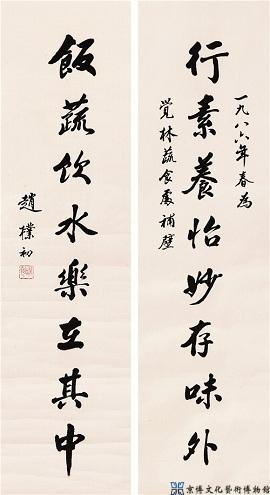 行素養怡妙存味外
一九八六年春為
覺林蔬食處補壁
飯蔬飲水樂在其中
趙樸初
京博文化藝術博物館